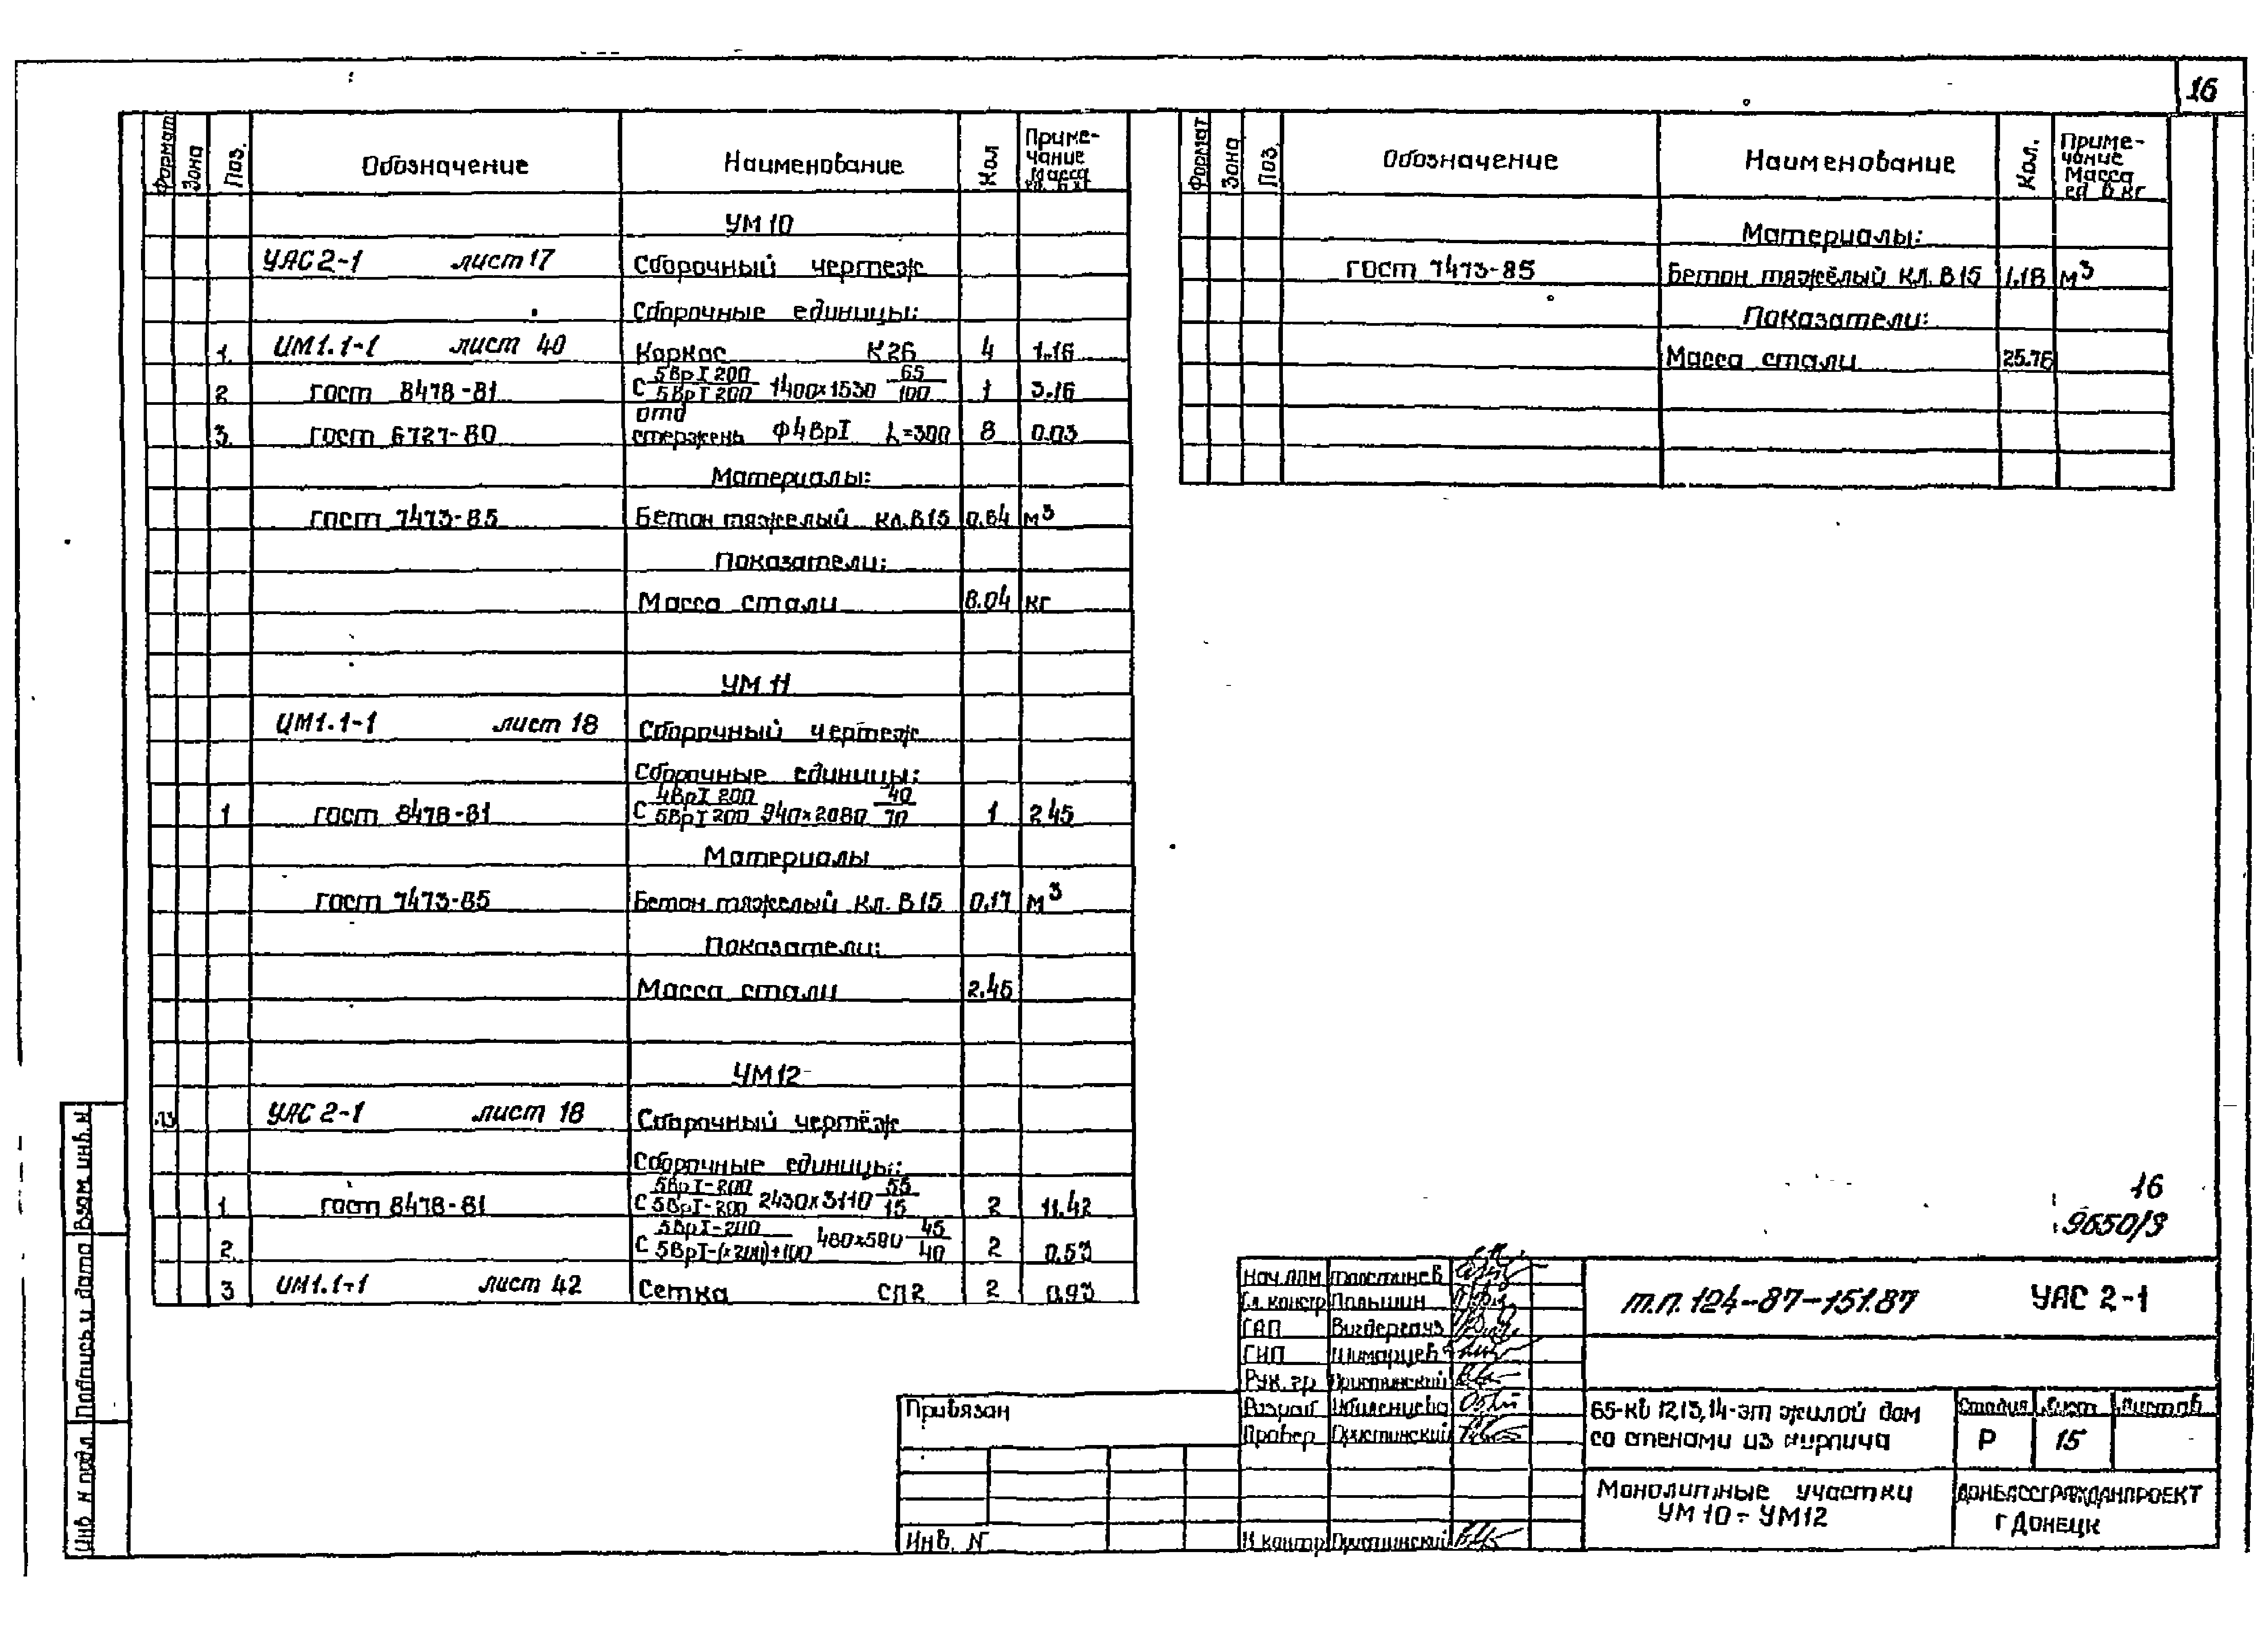 16
Формат Зона Поз. Обозначение Наименование Кол Примечание Масса ед. в кг
УМ 10
УАС 2-1 лист 17 Сборочный чертеж
Сборочные единицы:
1. ЦМ1.1-1 лист 40 Каркас К26 4 1.16
2 ГОСТ 8478-81 С 5ВрI 200/5ВрI 200 1400×1530 65/100 1 3.16
3. ГОСТ 6727-80 отд стержень Ф4ВрI L=300 8 0.03
Материалы:
ГОСТ 7473-85 Бетон тяжелый кл.В15 0.64 м³
Показатели:
Масса стали 8.04 кг
УМ 11
ЦМ1.1-1 лист 18 Сборочный чертеж
Сборочные единицы:
1 ГОСТ 8478-81 С 4ВрI 200/5ВрI 200 940×2080 40/70 1 2.45
Материалы
ГОСТ 7473-85 Бетон тяжелый кл. В15 0.17 м³
Показатели:
Масса стали 2.45
УМ12
УАС 2-1 лист 18 Сборочный чертёж
Сборочные единицы:
1 ГОСТ 8478-81 С 5ВрI-200/5ВрI-200 2430×3110 55/15 2 11.42
2. С 5ВрI-200/5ВрI-(×200)+100 480×580 45/40 2 0.53
3 ЦМ1.1-1 лист 42 Сетка СП2 2 0.93
Формат Зона Поз. Обозначение Наименование Кол. Примечание Масса ед. в кг
Материалы:
ГОСТ 7473-85 Бетон тяжёлый кл. В15 1.18 м³
Показатели:
Масса стали 25.76
16
9650/3
Взам. инв. N
Подпись и дата
Инв N подл
Привязан
Инв. N
Нач.АПМ
Гл. констр Польшин
ГАП Вигдергауз
ГИП
Рук. гр Пристинский
Разраб
Провер Пристинский
Н контр Пристинский
т.п. 124-87-151.87 УАС 2-1
65-кв 12,13,14-эт жилой дом
со стенами из кирпича
Стадия Лист Листов
Р 15
Монолитные участки
УМ 10 ÷ УМ12
ДОНБАССГРАЖДАНПРОЕКТ
г Донецк